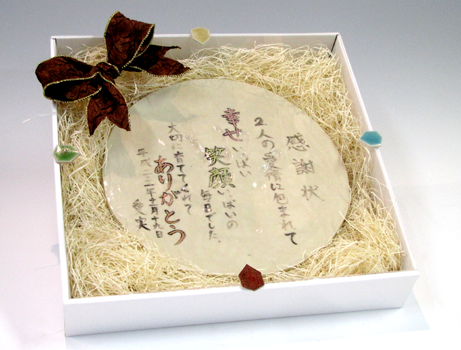 感謝状
2人の愛情に包まれて
幸せいっぱい
笑顔いっぱいの
毎日でした。
大切に育ててくれて
ありがとう
平成二十二年十月十九日